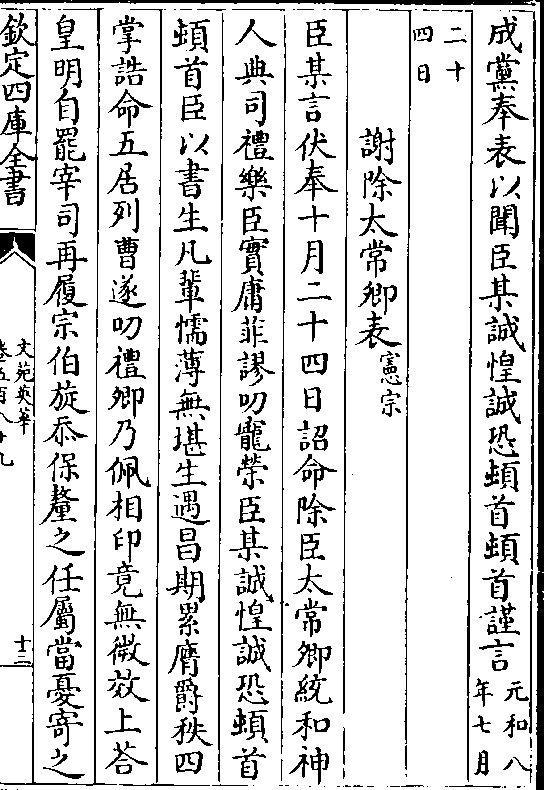 成黨奉表以聞臣某誠惶誠恐頓首頓首謹言元和八年七月
二十四日
謝除太常卿表憲宗
臣某言伏奉十月二十四日詔命除臣太常卿統和神
人典司禮樂臣實庸菲謬叨寵榮臣某誠惶誠恐頓首
頓首臣以書生凡輩懦薄無堪生遇昌期累膺爵秩四
掌誥命五居列曹遂叨禮卿乃佩相印竟無微效上荅
皇明自罷宰司再履宗伯旋忝保釐之任屬當憂寄之
欽定四庫全書
文苑英華
卷五百八十九
十三